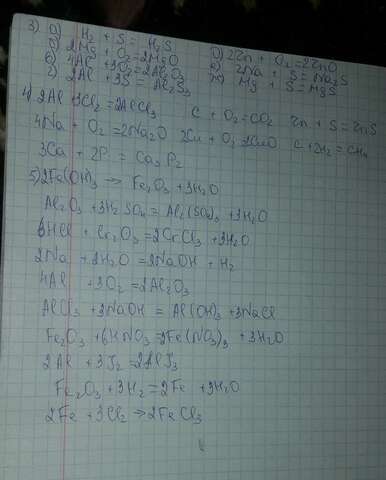 3) а) H2 + S = H2S
б) 2Mg + O2 = 2MgO
в) 4Al + 3O2 = 2Al2O3
г) 2Al + 3S = Al2S3
д) 2Zn + O2 = 2ZnO
е) 2Na + S = Na2S
ж) Mg + S = MgS
4) 2Al + 3Cl2 = 2AlCl3 C + O2 = CO2 Zn + S = ZnS
4Na + O2 = 2Na2O 2Cu + O2 2CuO C + 2H2 = CH4
3Ca + 2P = Ca3P2
5) 2Fe(OH)3 → Fe2O3 + 3H2O
Al2O3 + 3H2SO4 = Al2(SO4)3 + 3H2O
6HCl + Cr2O3 = 2CrCl3 + 3H2O
2Na + 2H2O = 2NaOH + H2
4Al + 3O2 = 2Al2O3
AlCl3 + 3NaOH = Al(OH)3 + 3NaCl
Fe2O3 + 6HNO3 = 2Fe(NO3)3 + 3H2O
2Al + 3J2 = 2AlJ3
Fe2O3 + 3H2 = 2Fe + 3H2O
2Fe + 3Cl2 → 2FeCl3